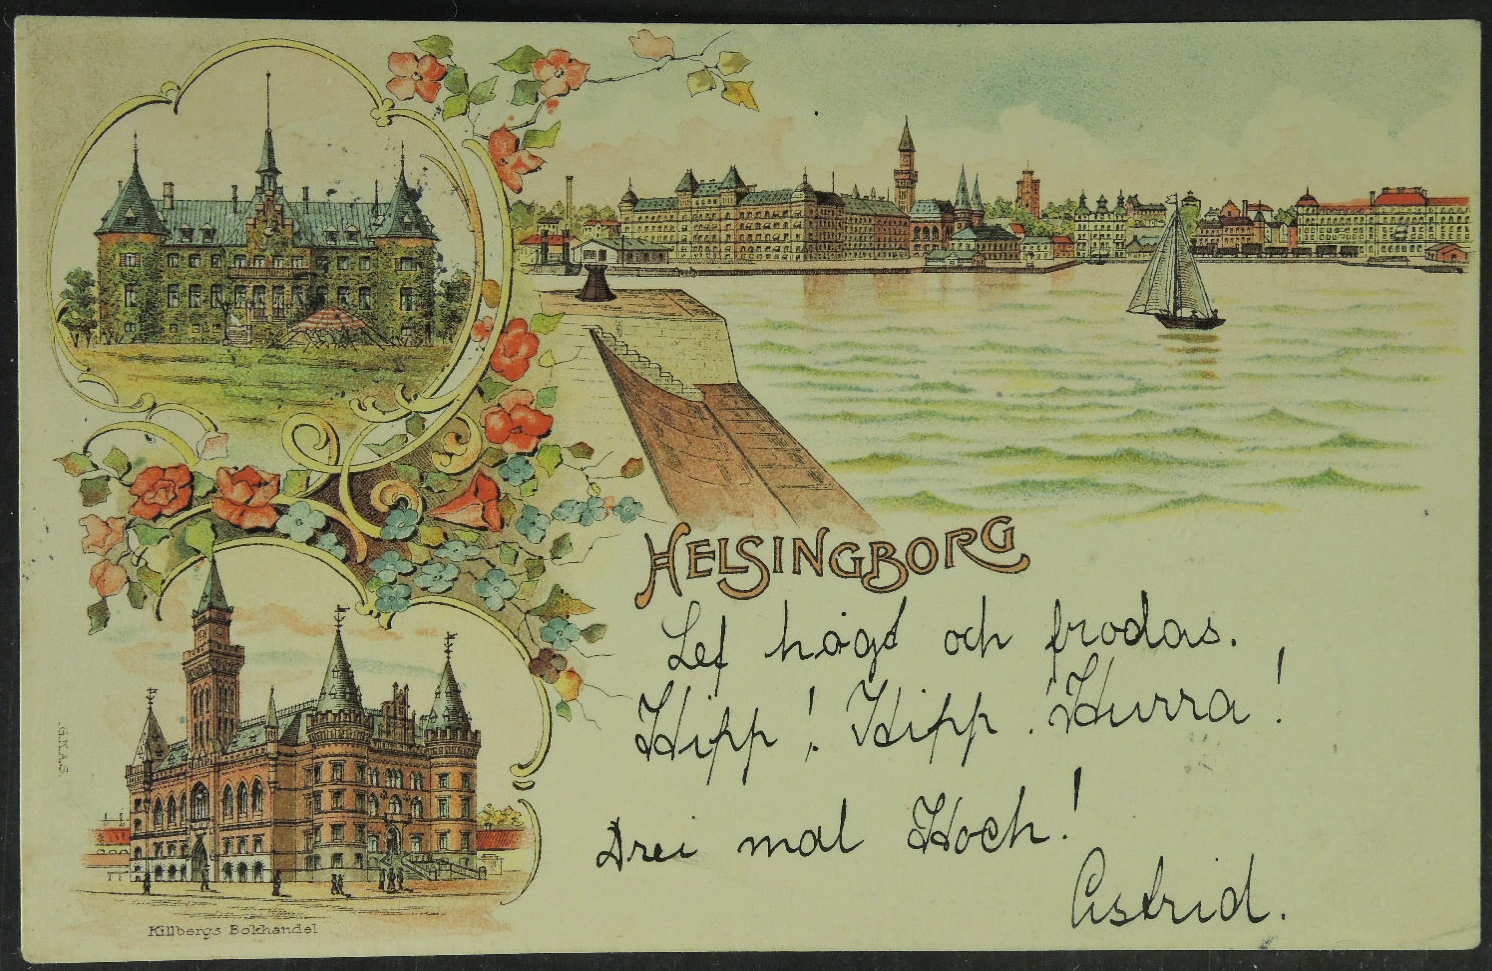 HELSINGBORG
Lef högt och frodas.
Hipp! Hipp! Hurra!
Drei mal Hoch!
Astrid.
G.K.A.S.
Killbergs Bokhandel